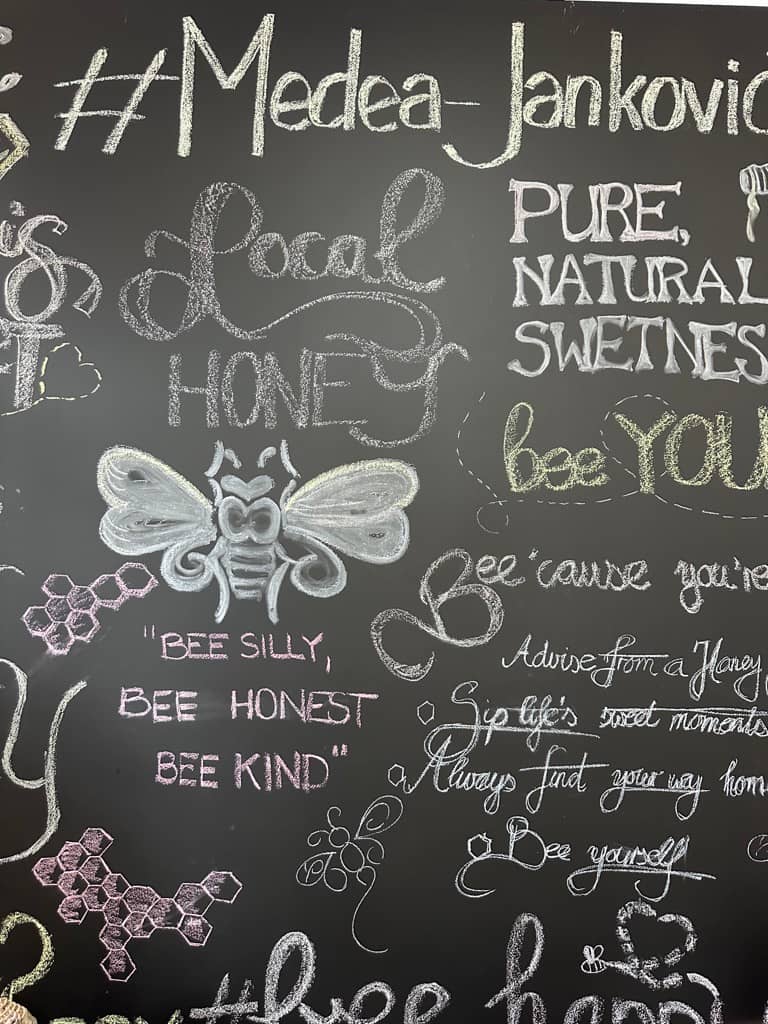 #Medea-Jankovic
Local
HONEY
PURE,
NATURAL
SWETNES
bee YOU
Bee'cause you're
"BEE SILLY,
BEE HONEST
BEE KIND"
Advise from a Honey
Sip life's sweet moments
Always find your way hom
Bee yourself
#bee happy